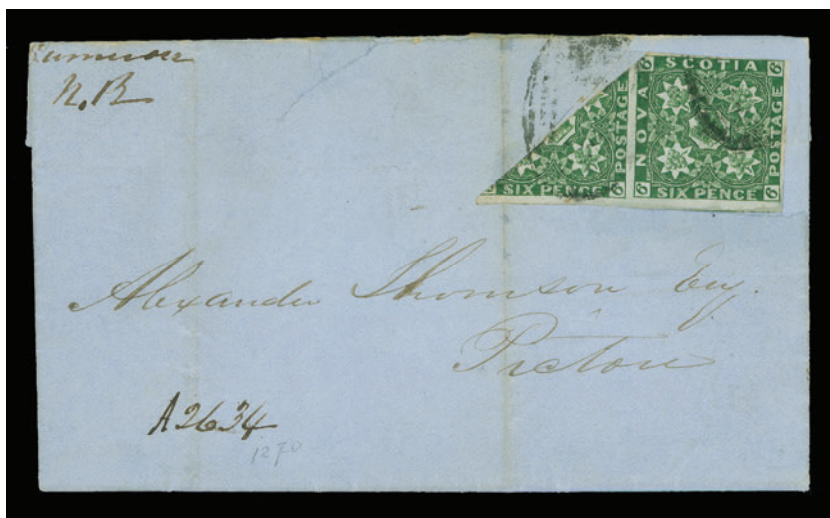 N.B
6 SCOTIA 6
NOVA
POSTAGE
POSTAGE
SIX PENCE 6
6 SIX PENCE 6
Alexander Thomson Esq.
Pictou
A2634
1270